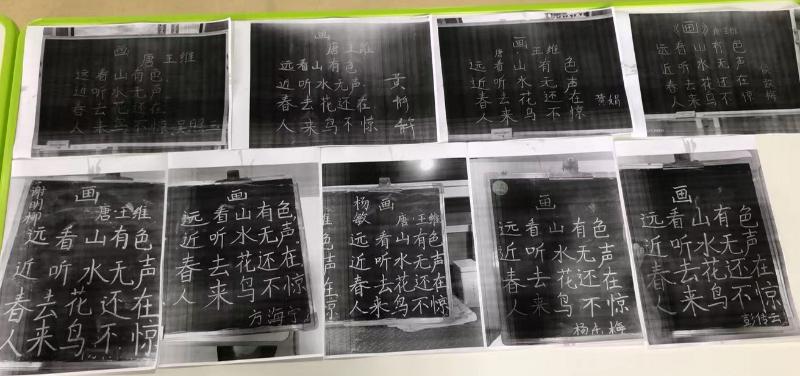 画
唐 王维
远看山有色
近听水无声
春去花还在
人来鸟不惊
画
唐 王维
远看山有色
近听水无声
春去花还在
人来鸟不惊
黄
画
唐 王维
远看山有色
近听水无声
春去花还在
人来鸟不惊
黄娟
《画》
唐 王维
远看山有色
近听水无声
春去花还在
人来鸟不惊
谢明柳
画
唐 王维
远看山有色
近听水无声
春去花还在
人来鸟不惊
画
远看山有色
近听水无声
春去花还在
人来鸟不惊
方海宁
杨敏
画
唐 王维
远看山有色
近听水无声
春去花还在
人来鸟不惊
维
色
声
在
惊
画
远看山有色
近听水无声
春去花还在
人来鸟不惊
杨小梅
画
远看山有色
近听水无声
春去花还在
人来鸟不惊
彭传云